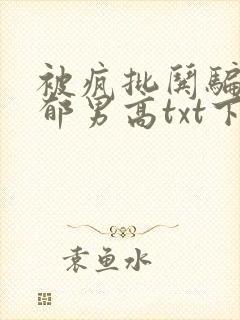 被疯批闺骗
郁男高txt下
袁鱼水